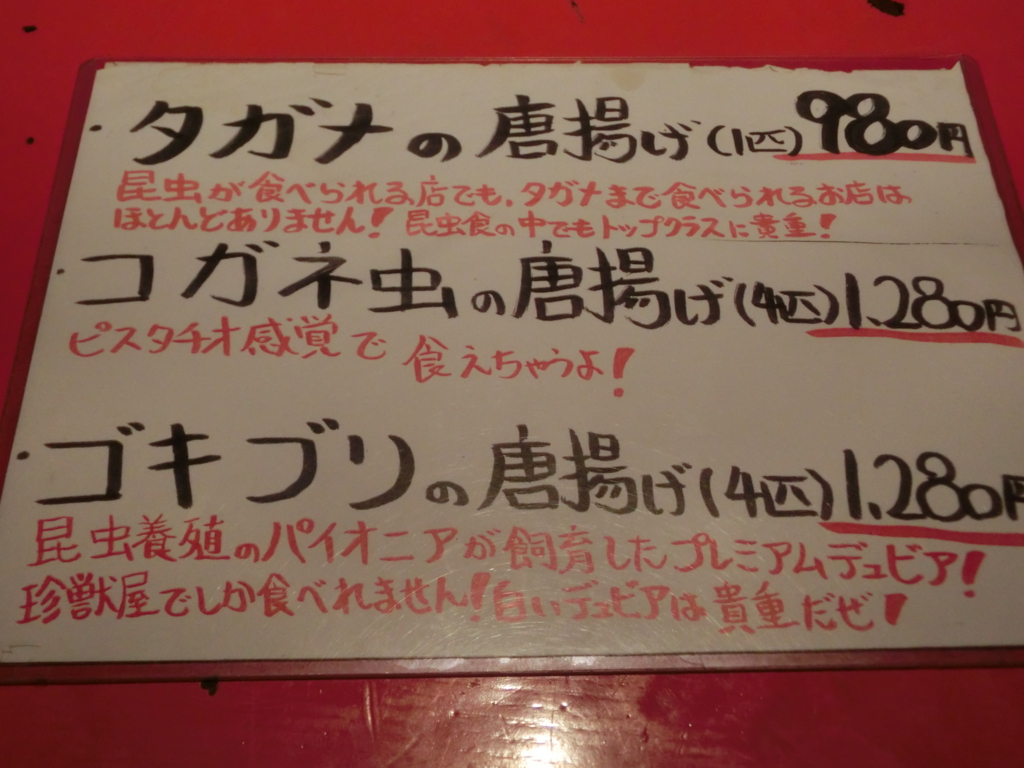 ・タガメの唐揚げ(1匹)980円
昆虫が食べられる店でも、タガメまで食べられるお店は
ほとんどありません!昆虫食の中でもトップクラスに貴重!
・コガネ虫の唐揚げ(4匹)1.280円
ピスタチオ感覚で食えちゃうよ!
・ゴキブリの唐揚げ(4匹)1.280円
昆虫養殖のパイオニアが飼育したプレミアムデュビア!
珍獣屋でしか食べれません!白いデュビアは貴重だぜ!